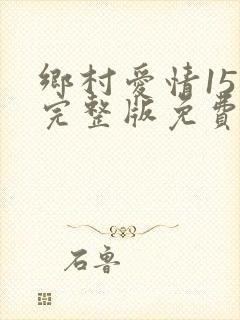 鄉村愛情15
完整版免費
石魯